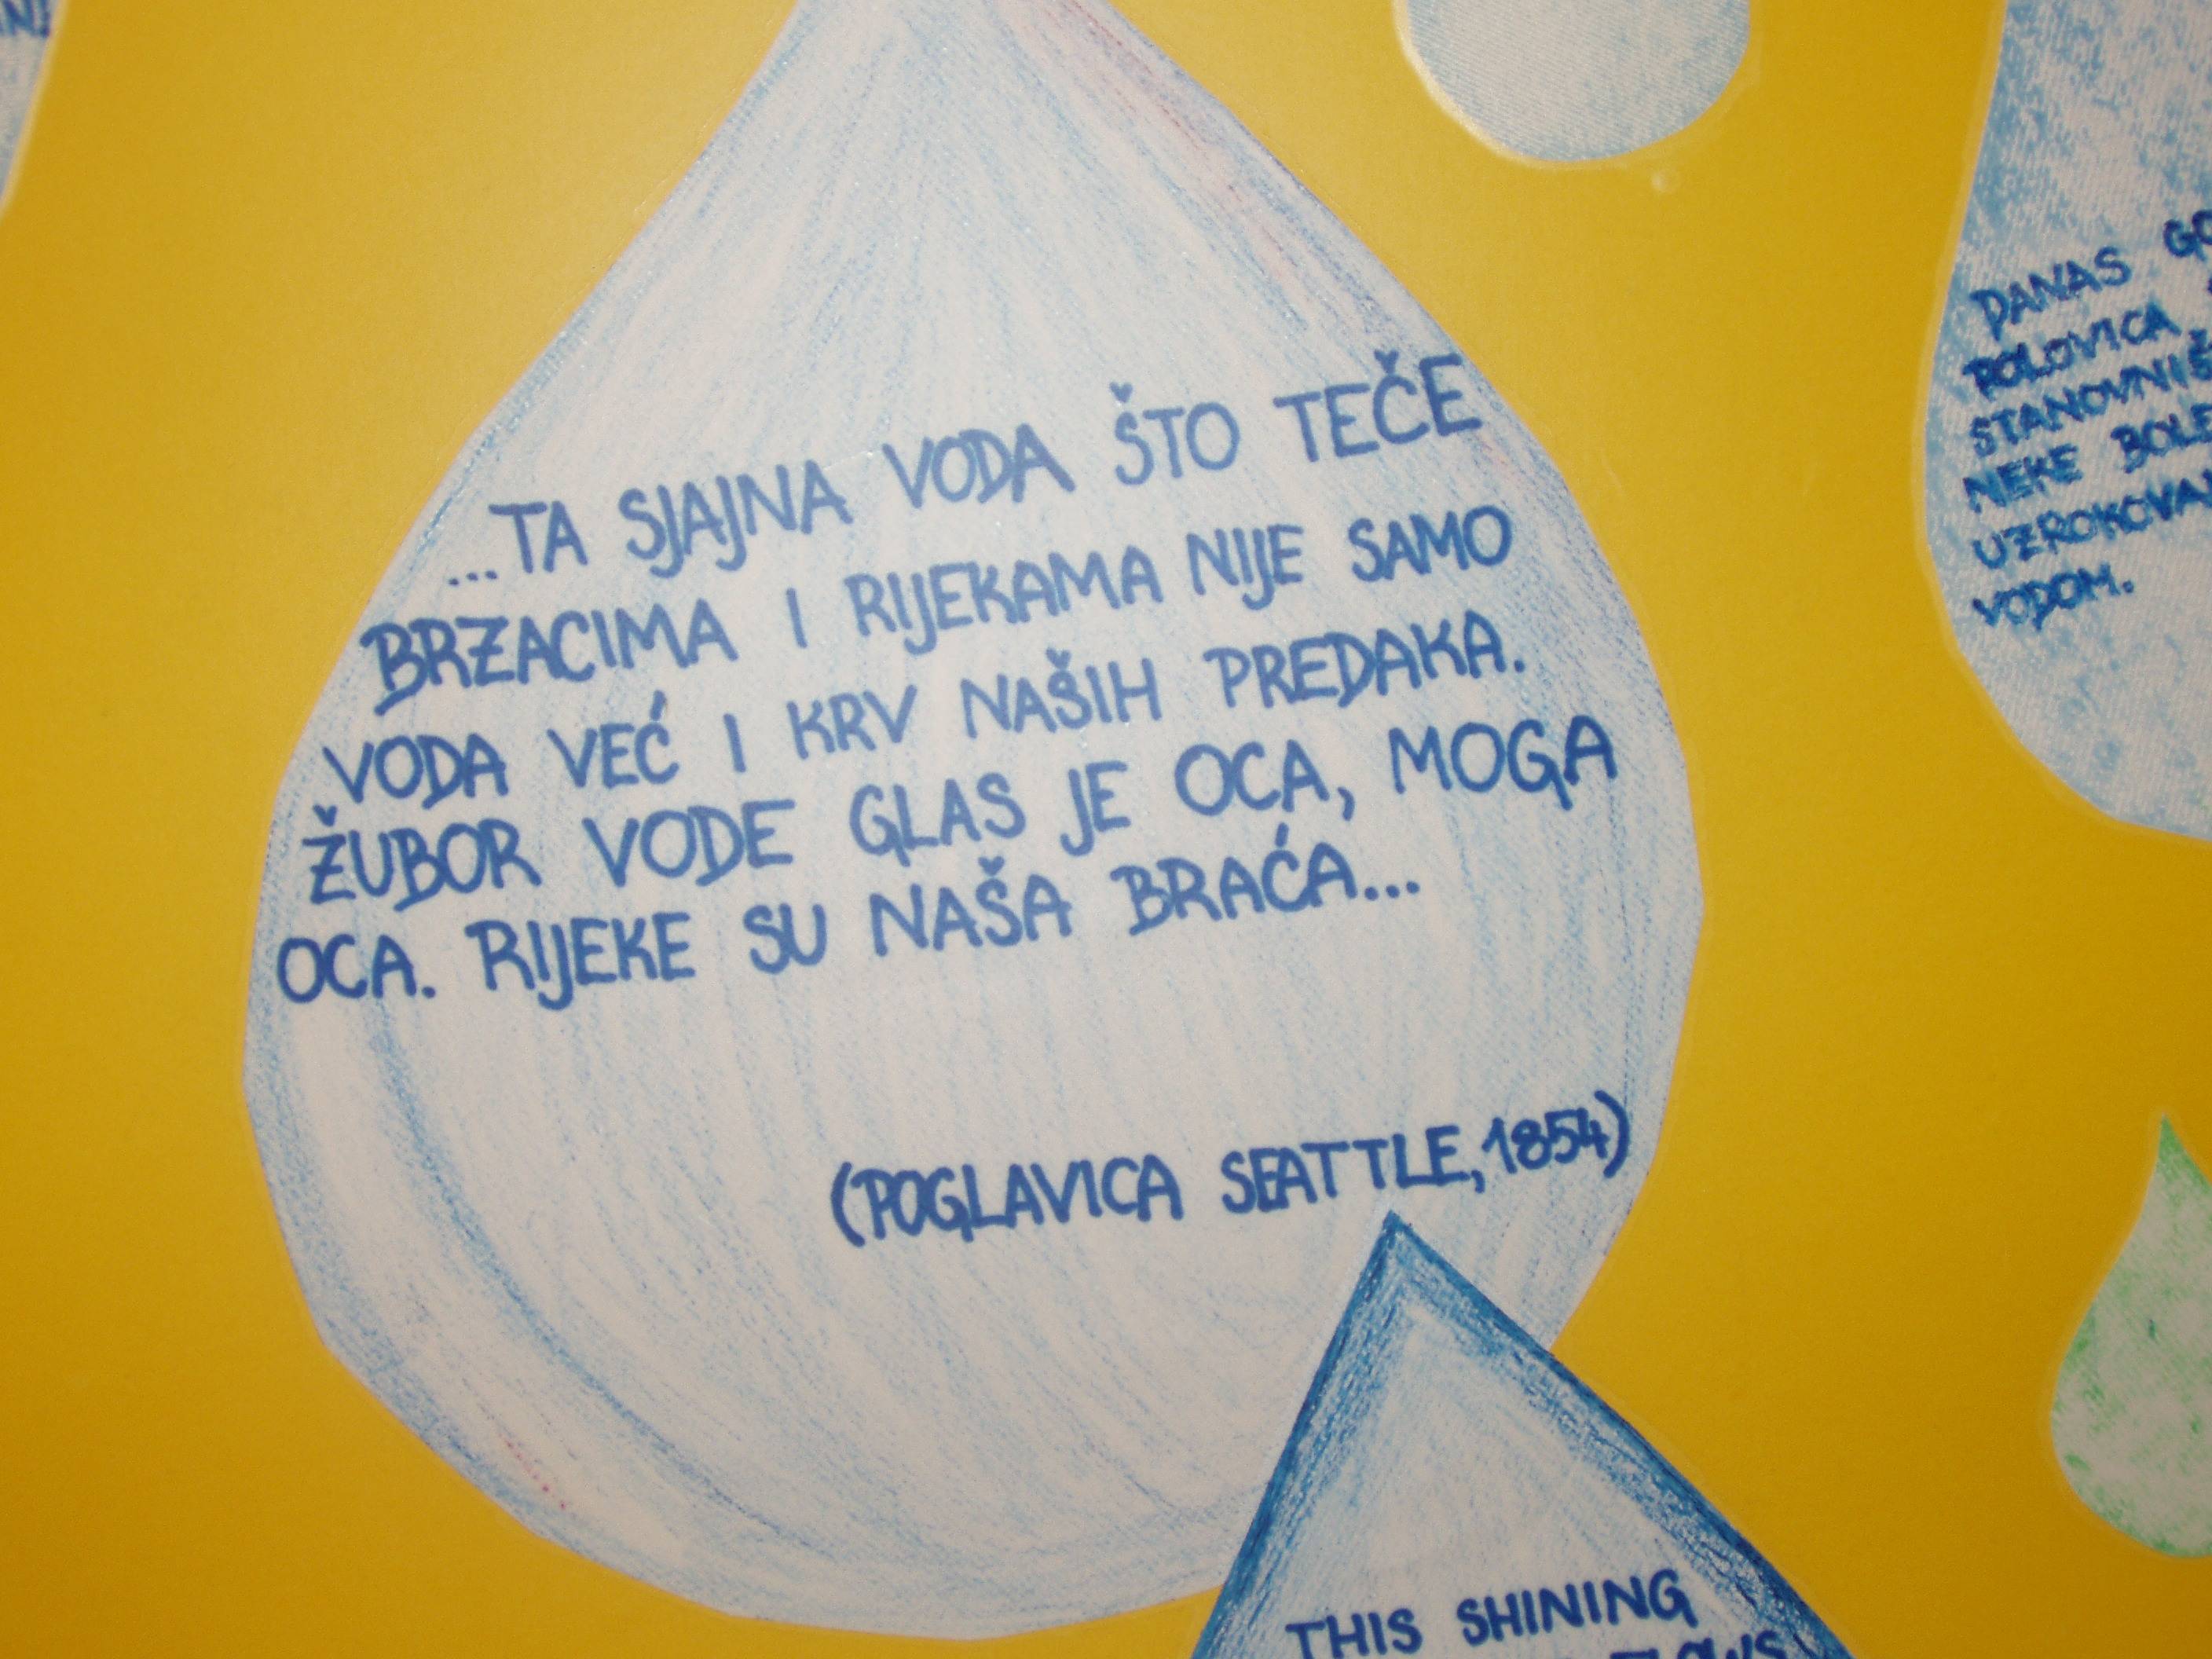 ...TA SJAJNA VODA ŠTO TEČE
BRZACIMA I RIJEKAMA NIJE SAMO
VODA VEĆ I KRV NAŠIH PREDAKA.
ŽUBOR VODE GLAS JE OCA, MOGA
OCA. RIJEKE SU NAŠA BRAĆA...
(POGLAVICA SEATTLE, 1854)
DANAS
POLOVICA
NEKE
VODOM.
THIS SHINING